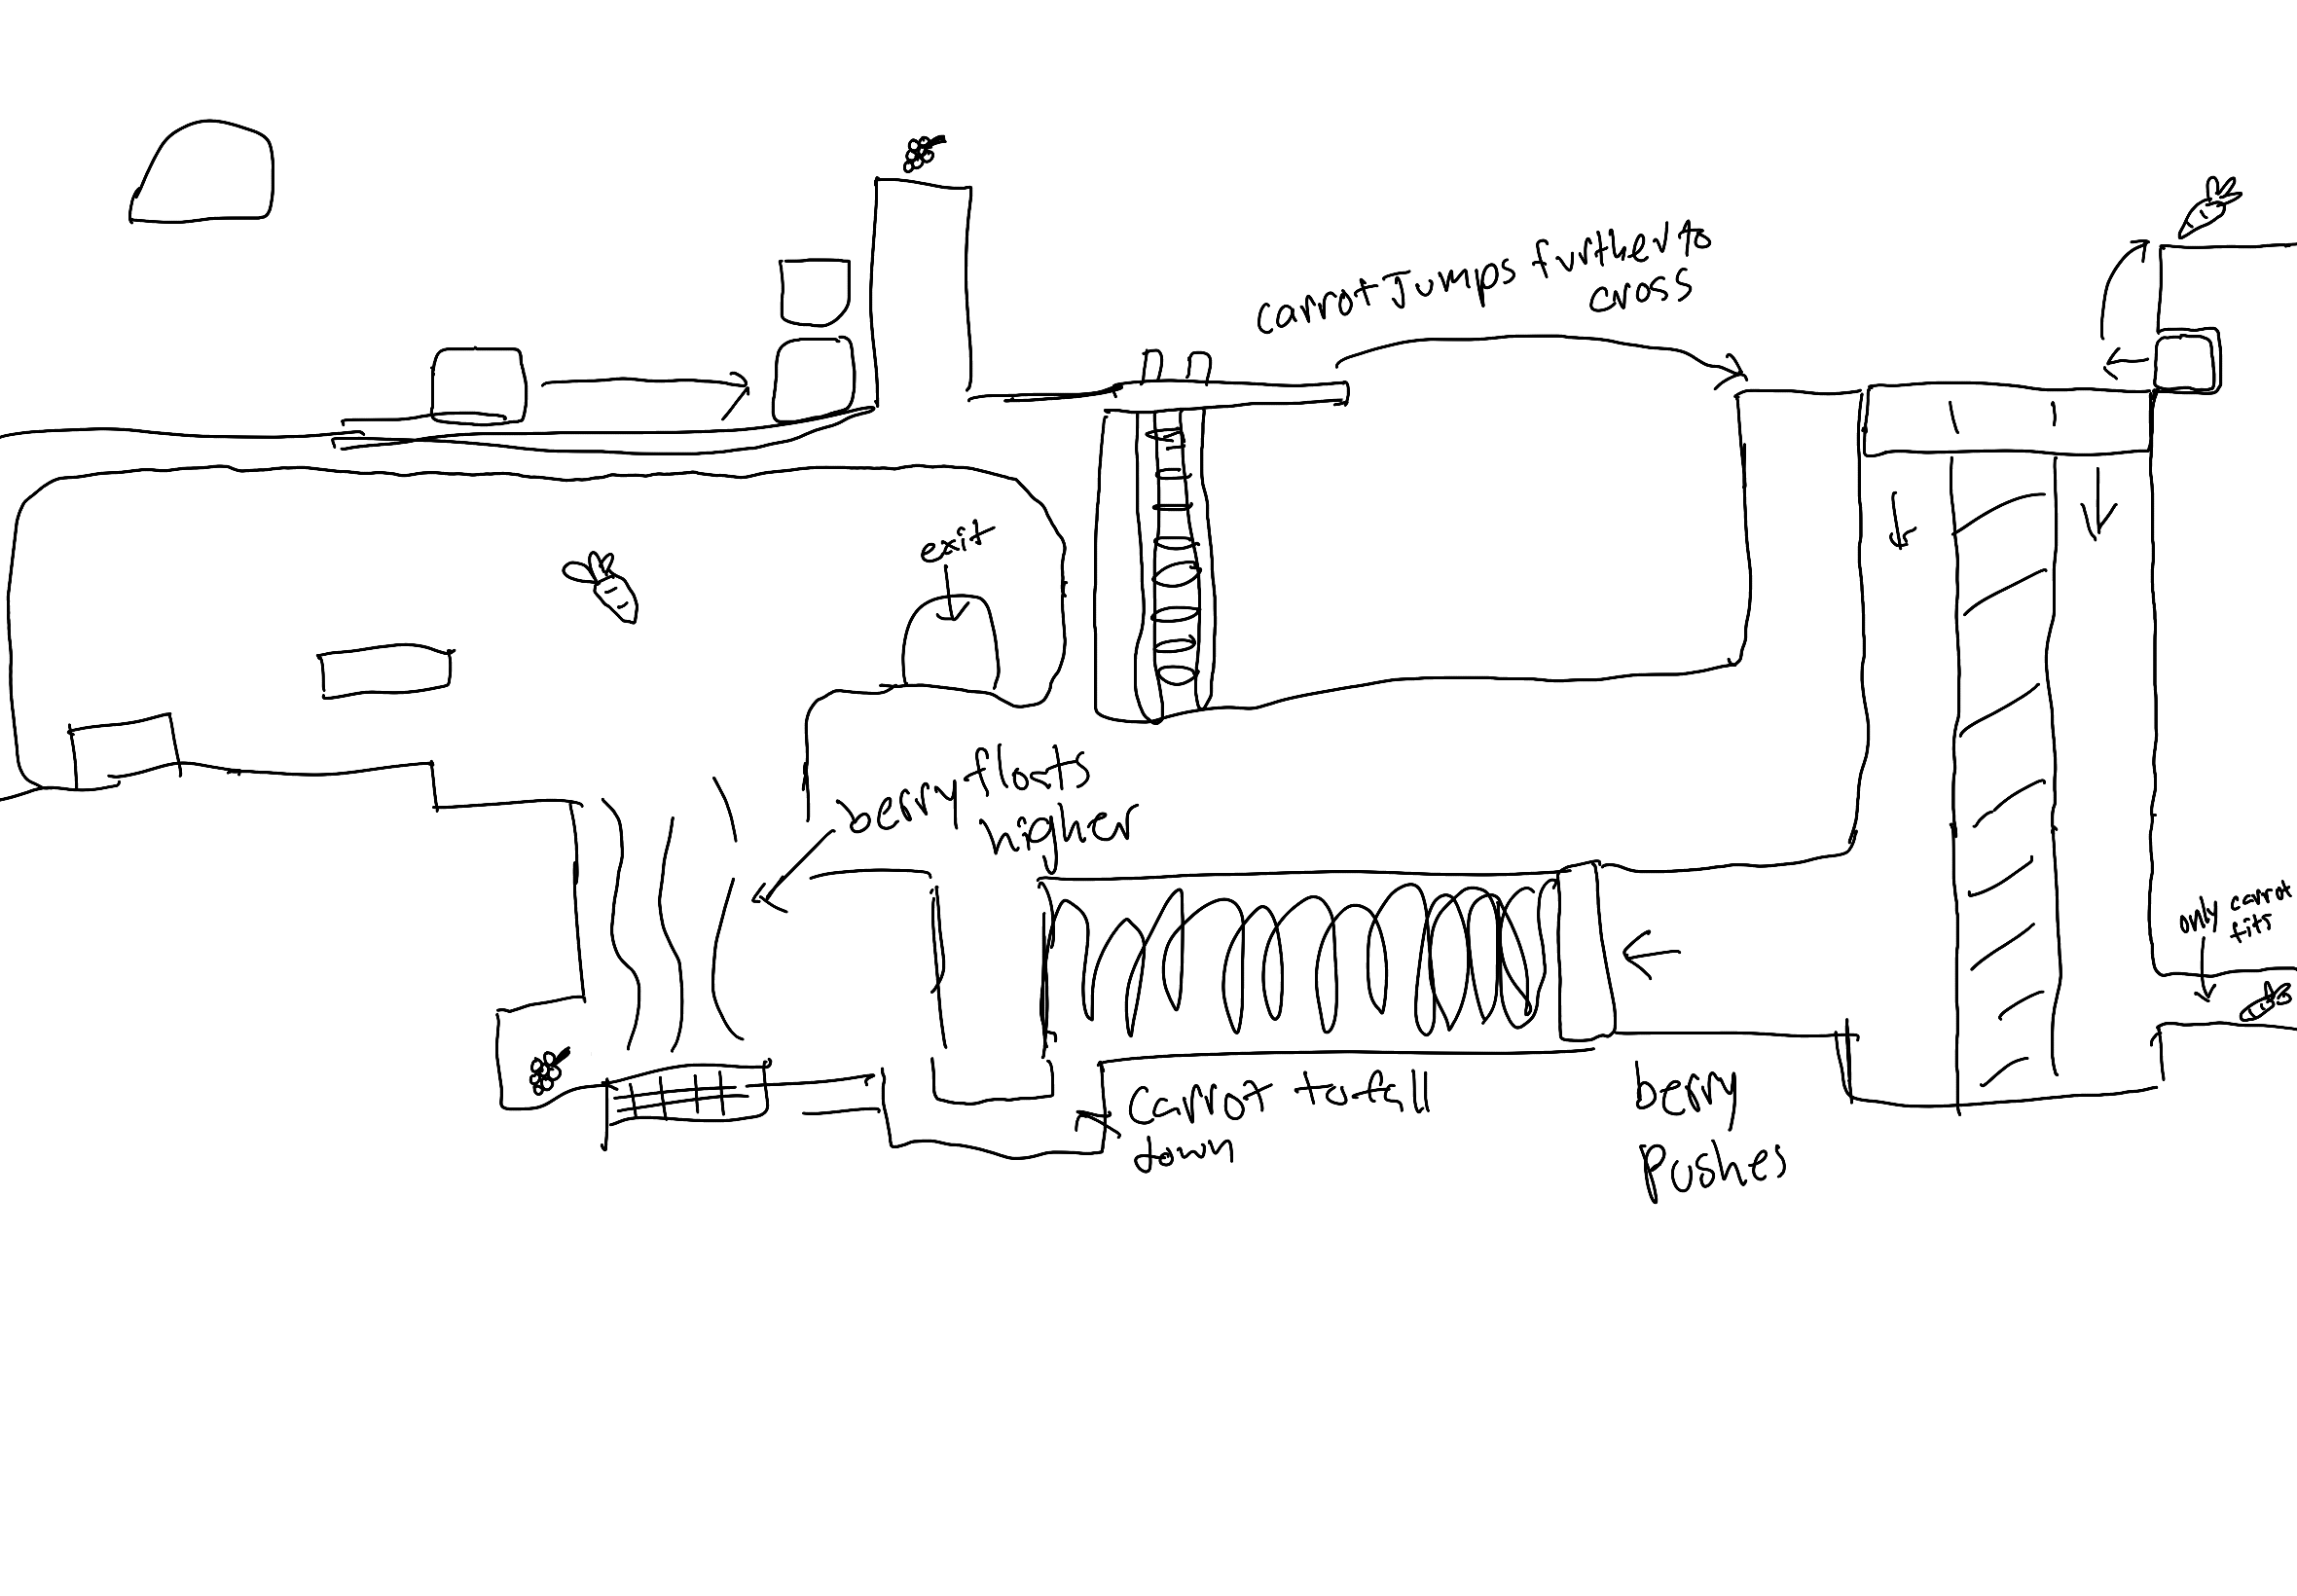 carrot jumps further to
cross
exit
berry floats
higher
only carrot
fits
carrot to fall
down
berry
pushes